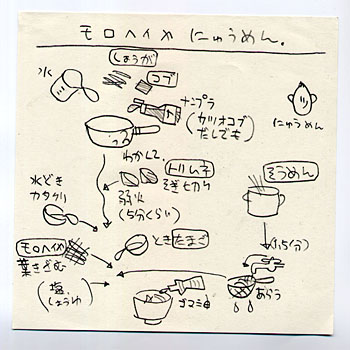 モロヘイヤ にゅうめん.
しょうが
水
コブ
ナンプラ
(カツオコブ
だしでも)
にゅうめん
わかして、
トリムネ
そぎ切り
弱火
(5分くらい)
そうめん
水どき
カタクリ
ときたまご
(1.5分)
モロヘイヤ
葉きざむ
(塩、
しょうゆ)
ゴマ油
あらう